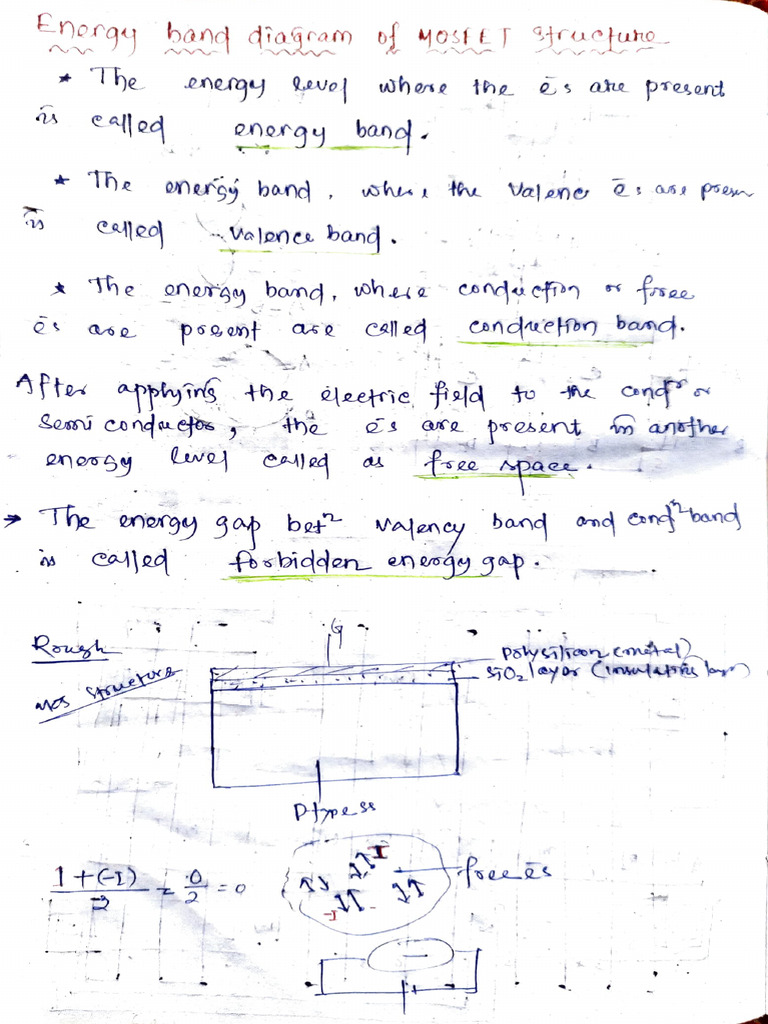 Energy band diagram of MOSFET structure
* The energy level where the ēs are present
is called energy band.
* The energy band, where the valenc ēs are presen
is called valence band.
* The energy band, where conduction or free
ēs are present are called conduction band.
After applying the electric field to the condʳ or
semi conductor, the ēs are present in another
energy level called as free space.
→ The energy gap betⁿ valency band and condⁿ band
is called forbidden energy gap.
Rough
MOS structure
G
polysilicon (metal)
SiO₂ layer (insulating layer)
P type ss
1+(-1)/2 = 0/2 = 0
free ēs